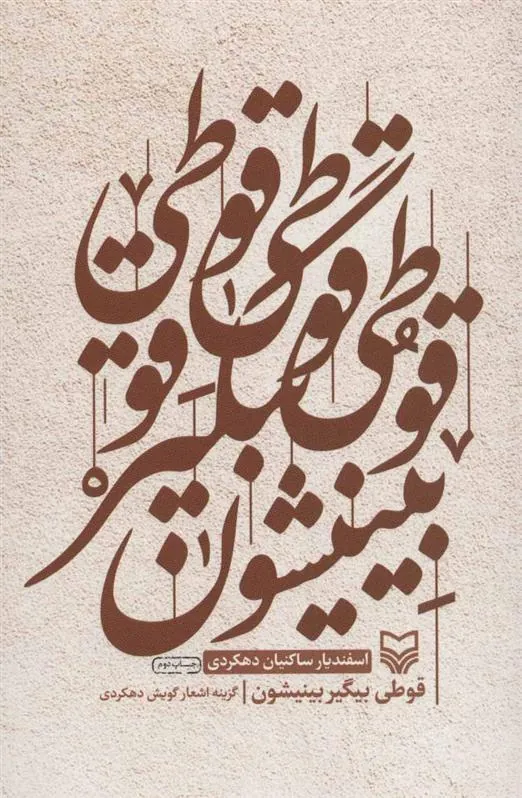 قوطی قوطی قوطی قوطی
بیگیر
بینیشون
اسفندیار ساکنیان دهکردی
چاپ دوم
قوطی بیگیر بینیشون | گزینه اشعار گویش دهکردی